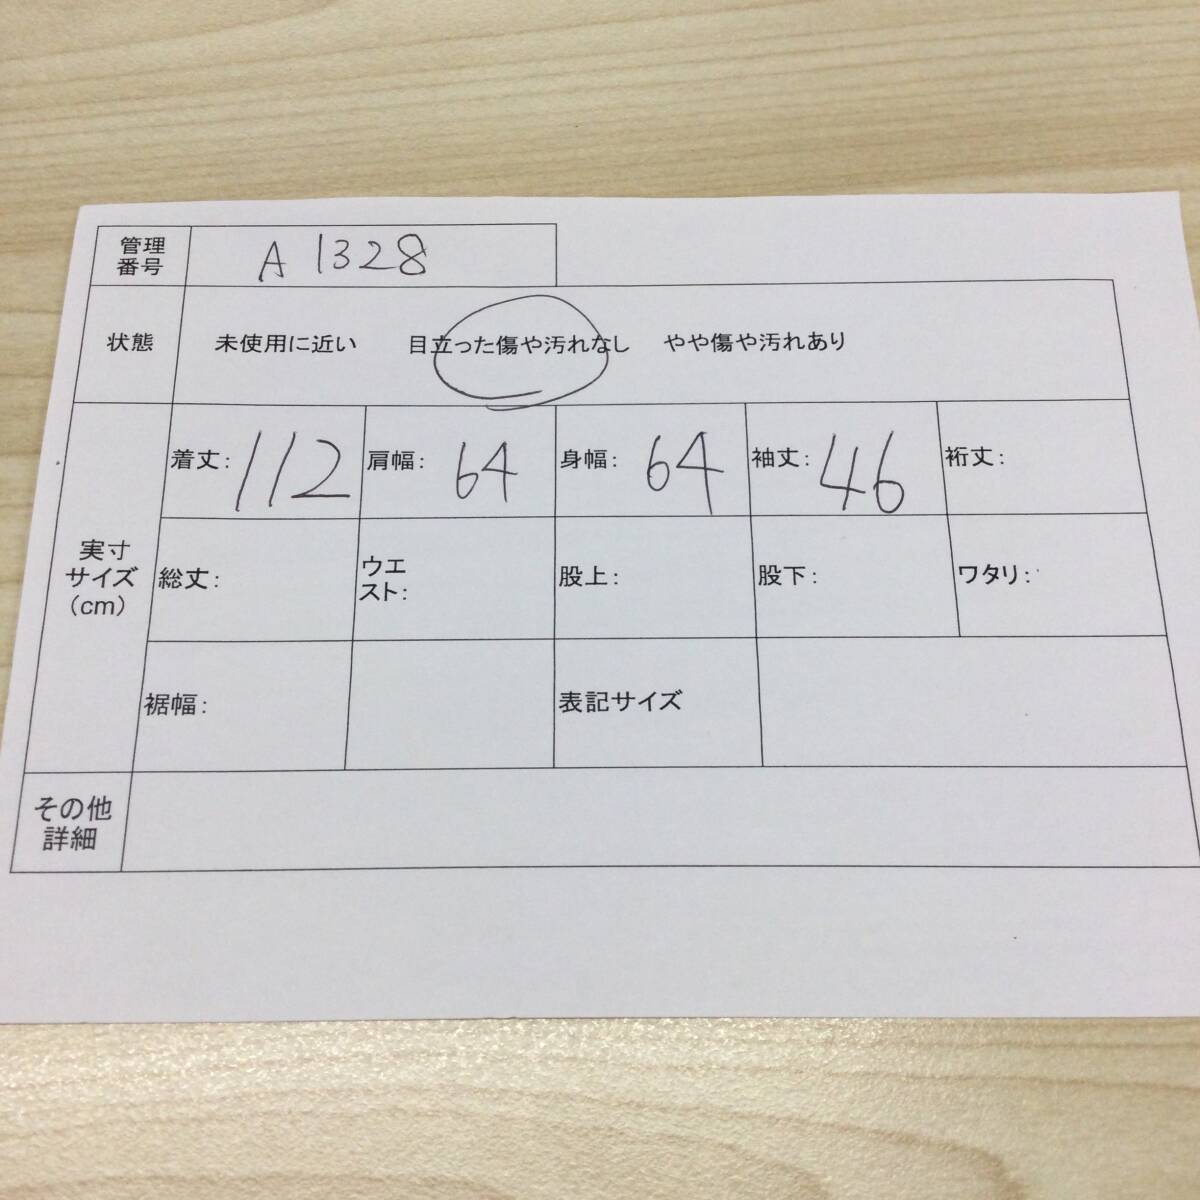 管理
番号
A1328
状態
未使用に近い 目立った傷や汚れなし やや傷や汚れあり
実寸
サイズ
(cm)
着丈: 112
肩幅: 64
身幅: 64
袖丈: 46
裄丈:
総丈:
ウエ
スト:
股上:
股下:
ワタリ:
裾幅:
表記サイズ
その他
詳細